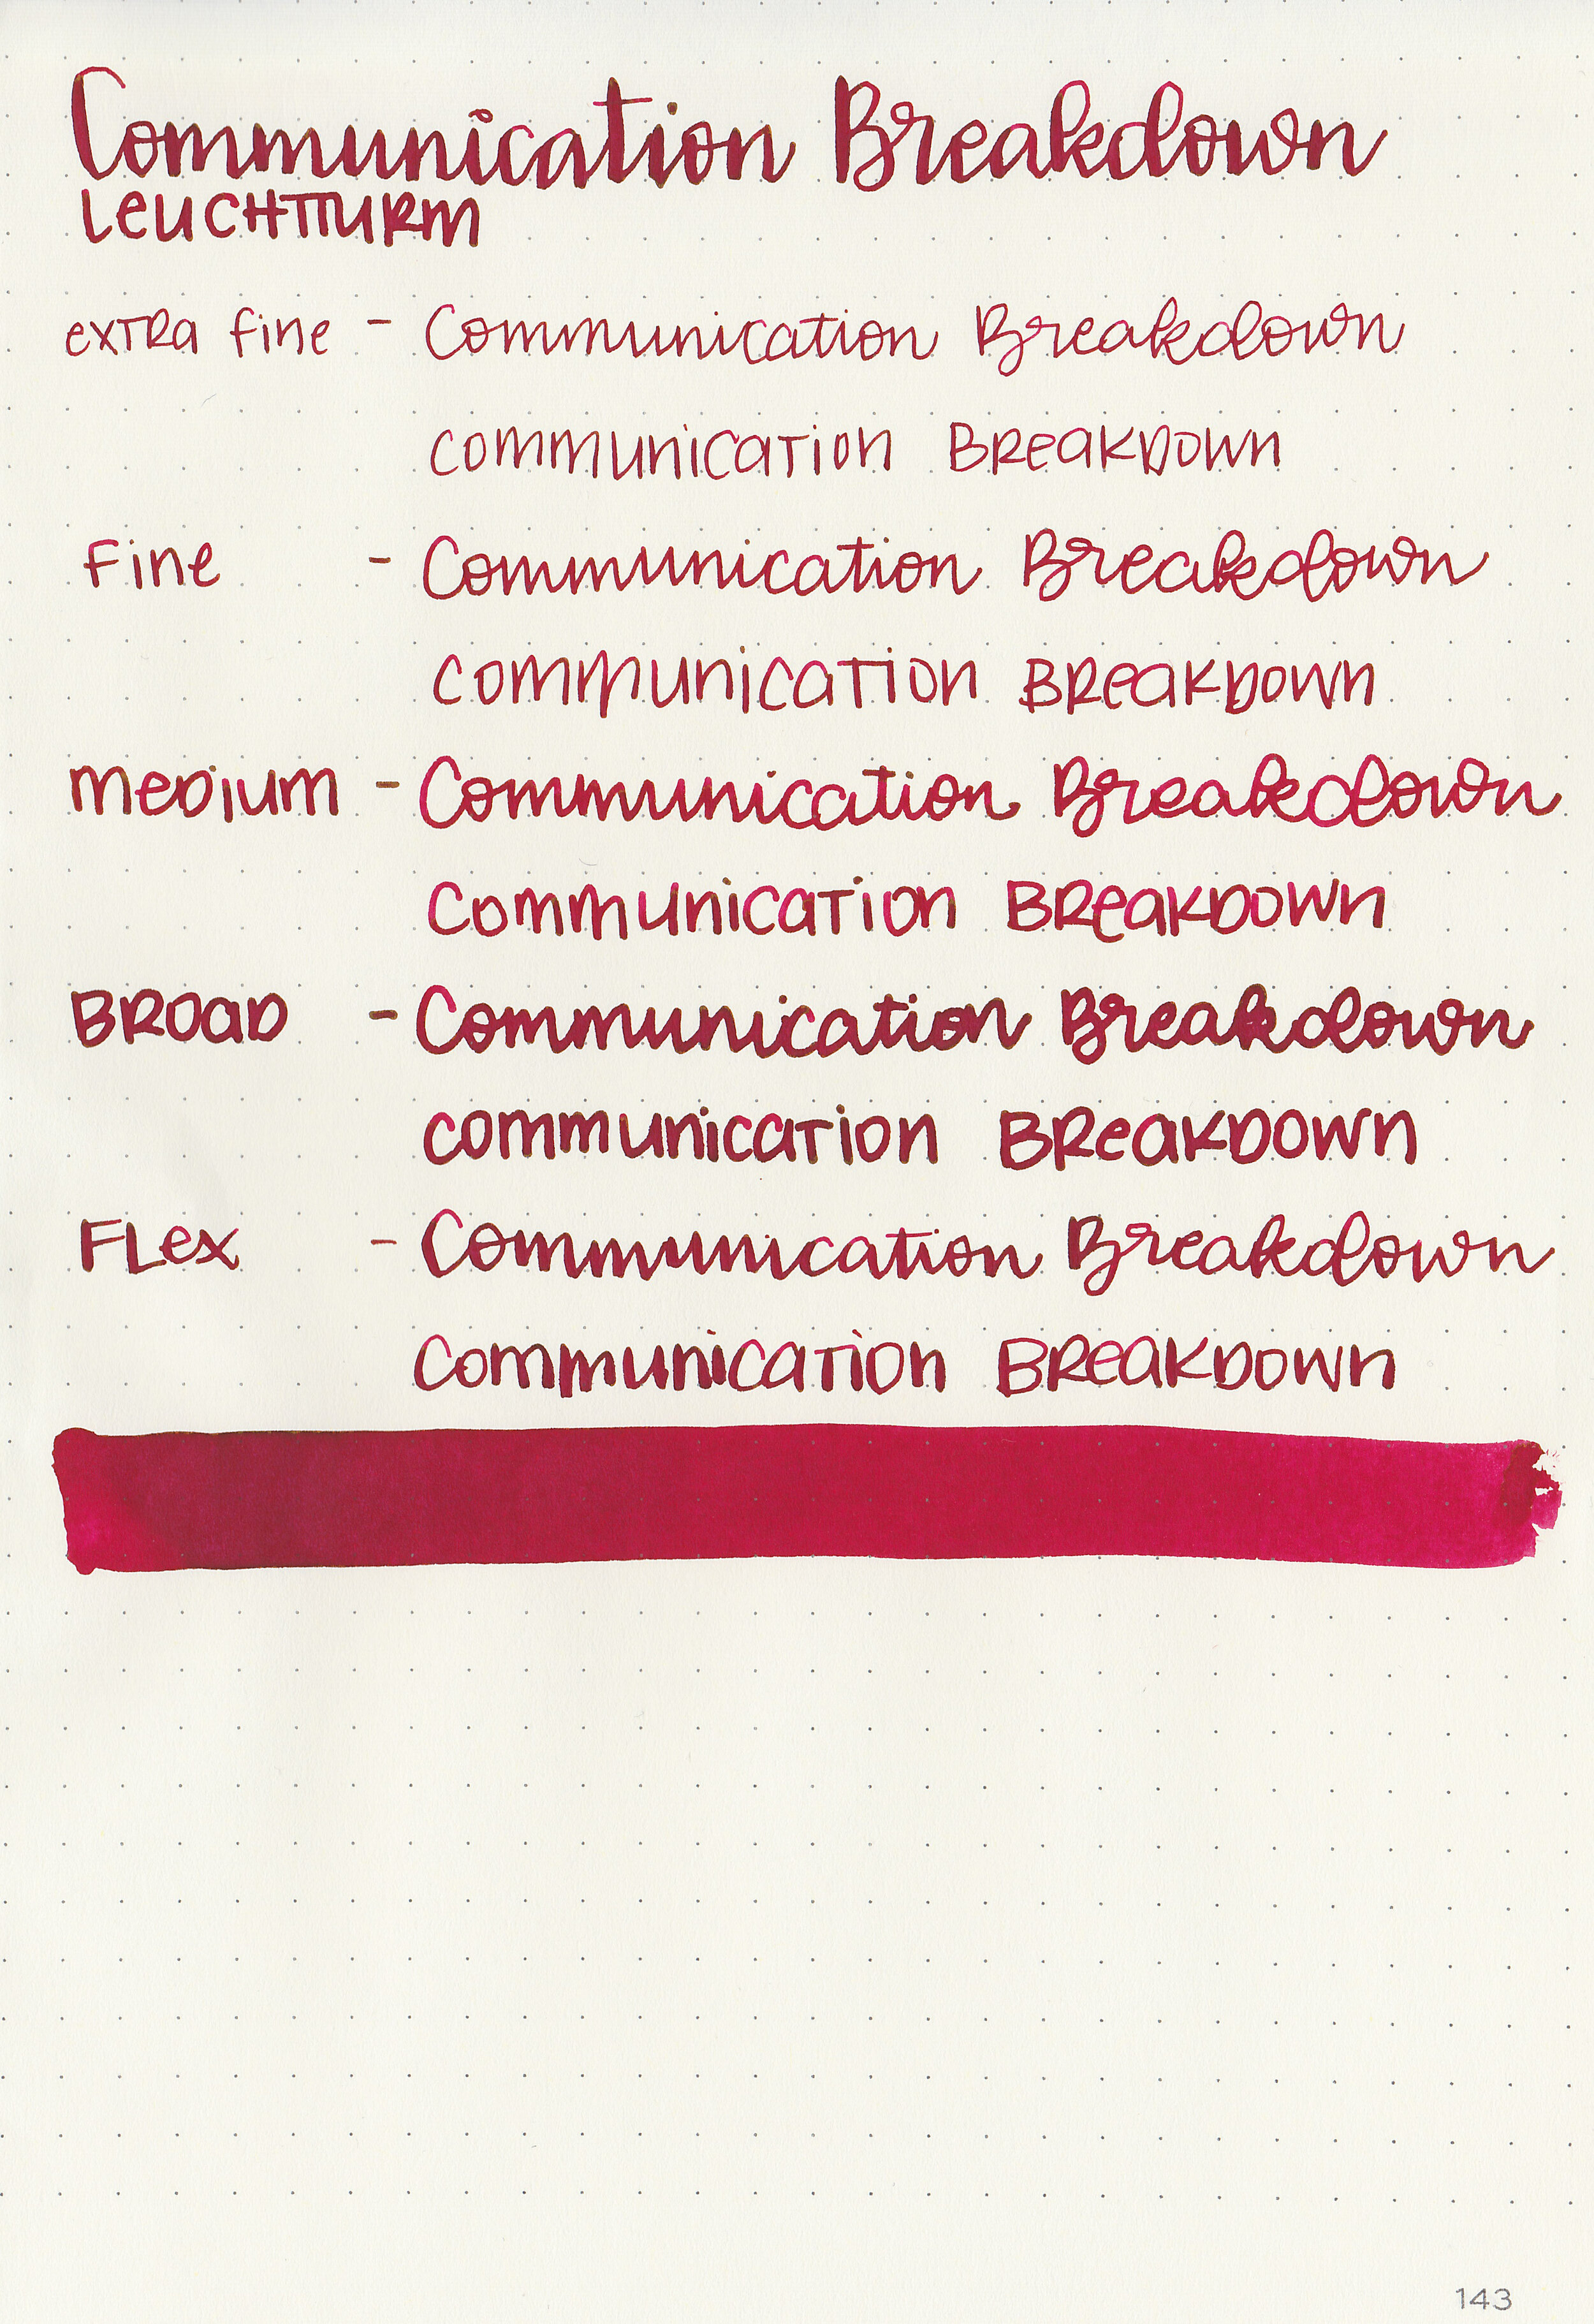 Communication Breakdown
LEUCHTTURM
extra fine - Communication Breakdown
communication Breakdown
Fine - Communication Breakdown
communication Breakdown
Medium - Communication Breakdown
communication Breakdown
Broad - Communication Breakdown
communication Breakdown
Flex - Communication Breakdown
Communication Breakdown
143